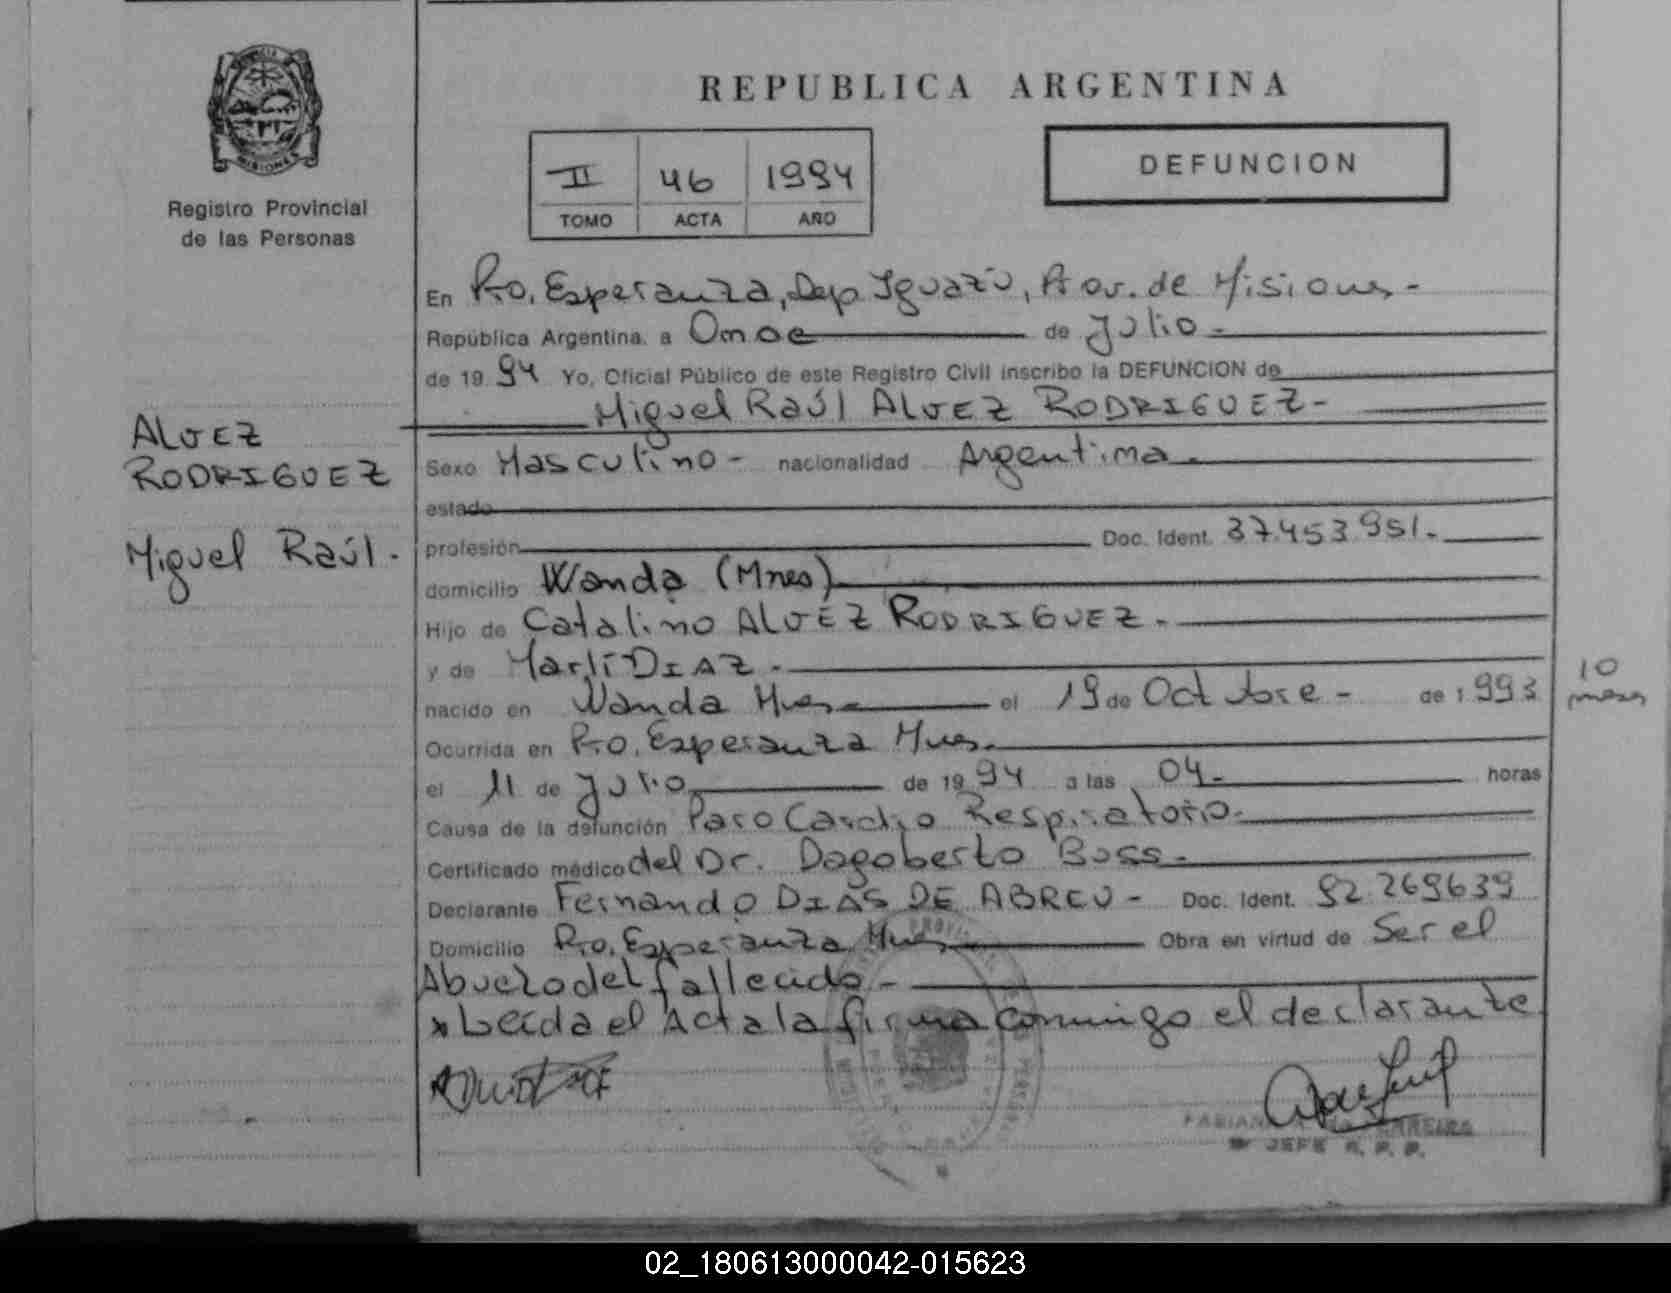 MISIONES
Registro Provincial
de las Personas
REPUBLICA ARGENTINA
II 46 1994
TOMO ACTA AÑO
DEFUNCION
ALVEZ
RODRIGUEZ
Miguel Raúl.
En Pto. Esperanza, Dep Iguazú, Prov. de Misiones -
República Argentina, a Once de Julio -
de 19 94 Yo, Oficial Público de este Registro Civil inscribo la DEFUNCION de
Miguel Raúl ALVEZ RODRIGUEZ -
Sexo Masculino - nacionalidad Argentina -
estado
profesión Doc. Ident. 37.453.951.-
domicilio Wanda (Mnes)
Hijo de Catalino ALVEZ RODRIGUEZ -
y de Marli DIAZ -
nacido en Wanda Mnes. el 19 de Octubre - de 1.993
10
meses
Ocurrida en Pto. Esperanza Mnes.
el 11 de Julio de 19 94 a las 04- horas
Causa de la defunción Paro Cardio Respiratorio.
Certificado médico del Dr. Dagoberto Boss -
Declarante Fernando DIAS DE ABREU - Doc. Ident. 92.269639
Domicilio Pto. Esperanza Mnes. Obra en virtud de Ser el
Abuelo del fallecido -
x Leida el Acta la firma conmigo el declarante
JEFE R. P. P.
02_180613000042-015623